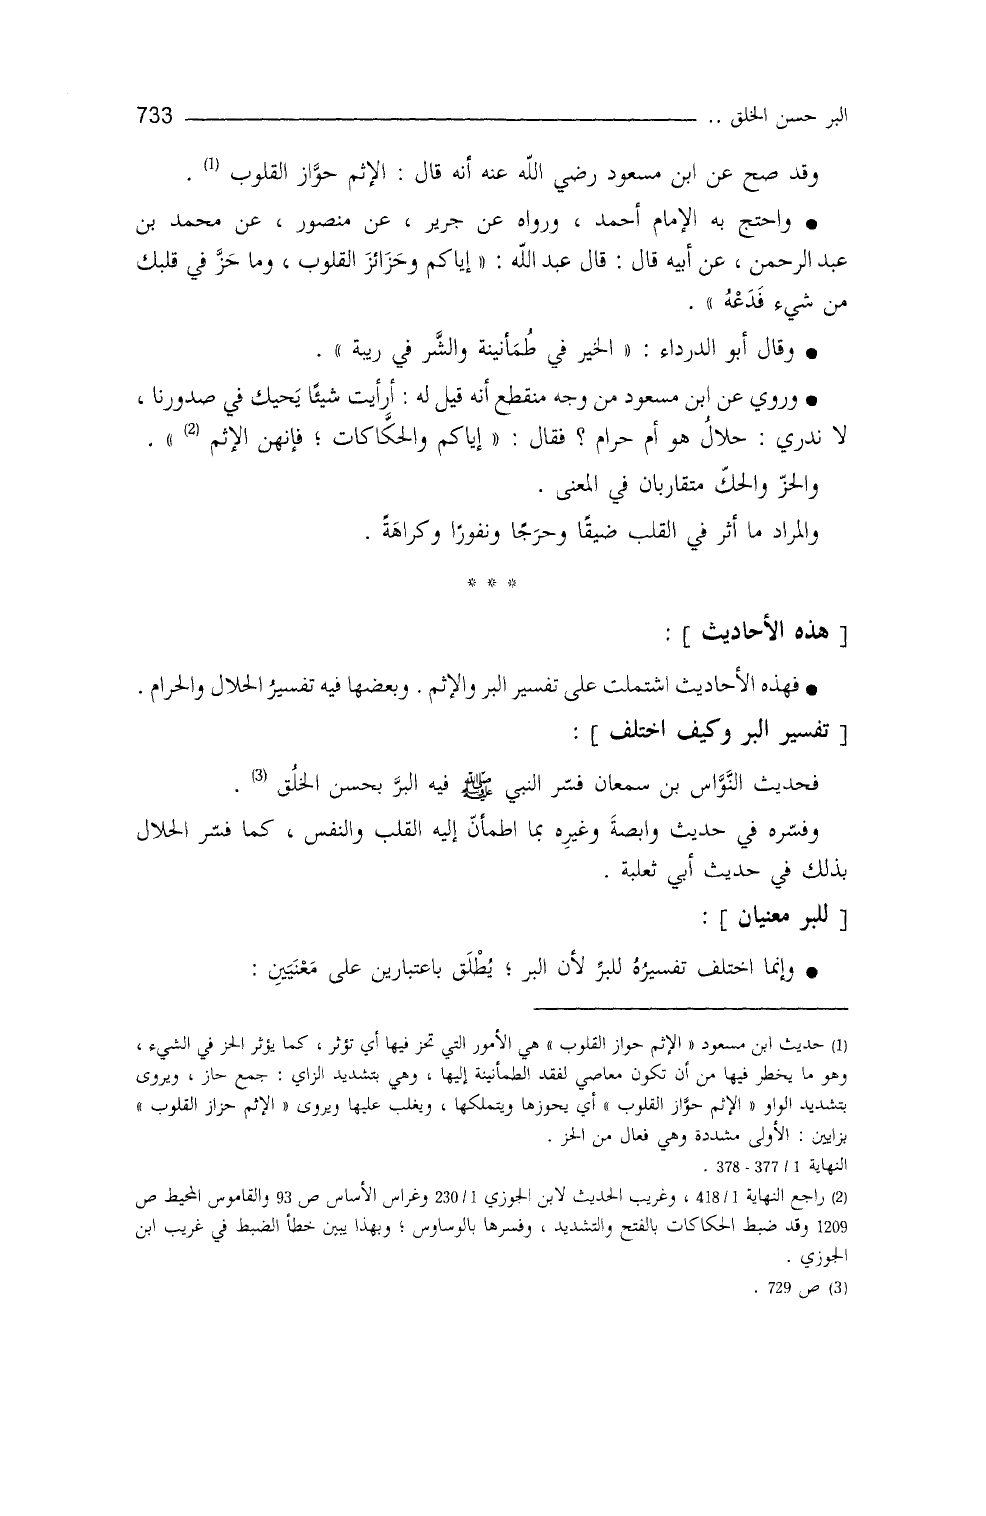 البر حسن الخلق .. 733
وقد صح عن ابن مسعود رضي الله عنه أنه قال : الإثم حوَّاز القلوب (1) .
● واحتج به الإمام أحمد ، ورواه عن جرير ، عن منصور ، عن محمد بن
عبد الرحمن ، عن أبيه قال : قال عبد الله : « إياكم وحَزَائزَ القلوب ، وما حَزَّ في قلبك
من شيء فَدَعْهُ » .
● وقال أبو الدرداء : « الخير في طُمَأنينة والشَّر في ريبة » .
● وروي عن ابن مسعود من وجه منقطع أنه قيل له : أرأيت شيئًا يَحيك في صدورنا ،
لا ندري : حلالٌ هو أم حرام ؟ فقال : « إياكم والحَكَّاكات ؛ فإنهن الإثم (2) » .
والحزّ والحكّ متقاربان في المعنى .
والمراد ما أثر في القلب ضيقًا وحرَجًا ونفورًا وكراهَةً .
* * *
[ هذه الأحاديث ] :
● فهذه الأحاديث اشتملت على تفسير البر والإثم . وبعضها فيه تفسيرُ الحلال والحرام .
[ تفسير البر وكيف اختلف ] :
فحديث النَّوَّاس بن سمعان فسّر النبي ﷺ فيه البرَّ بحسن الخلُق (3) .
وفسّره في حديث وابصةَ وغيرِه بما اطمأنّ إليه القلب والنفس ، كما فسّر الحلال
بذلك في حديث أبي ثعلبة .
[ للبر معنيان ] :
● وإنما اختلف تفسيرُهُ للبرِّ لأن البر ؛ يُطْلَق باعتبارين على مَعْنَيَينِ :
(1) حديث ابن مسعود « الإثم حواز القلوب » هي الأمور التي تحز فيها أي تؤثر ، كما يؤثر الحز في الشيء ،
وهو ما يخطر فيها من أن تكون معاصي لفقد الطمأنينة إليها ، وهي بتشديد الزاي : جمع حاز ، ويروى
بتشديد الواو « الإثم حوَّاز القلوب » أي يحوزها ويتملكها ، ويغلب عليها ويروى « الإثم حزاز القلوب »
بزايين : الأولى مشددة وهي فعال من الحز .
النهاية 1 / 377 - 378 .
(2) راجع النهاية 1 / 418 ، وغريب الحديث لابن الجوزي 1 / 230 وغراس الأساس ص 93 والقاموس المحيط ص
1209 وقد ضبط الحكاكات بالفتح والتشديد ، وفسرها بالوساوس ؛ وبهذا يبين خطأ الضبط في غريب ابن
الجوزي .
(3) ص 729 .